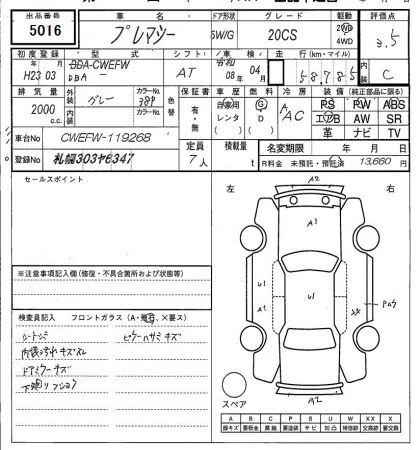 出品番号 車名 ドア形状 グレード 駆動 評価点
5016 プレマシー 5W/G 20CS 2WD 4WD 3.5
初度登録 型式 シフト 車検 走行(km・マイル) 内装
H23 03 DBA-CWEFW AT 08年 04月 58,785 C
DBA-
排気量 外装 カラーNo. 色替 保証書 車歴 燃料 エアコン 装備(純正部品に限る)
2000 c.c. グレー 38P 有・無 自家用 レンタ G D AAC PS PW ABS
内装 カラーNo. エアB AW SR
革 ナビ TV
車台No CWEFW-119268 定員 積載量 名変期限 年 月 日
登録No 札幌303や6347 7人 t R料金 未預託・預託済 13,660円
セールスポイント
左 右
A2
A1
U1 U1
A1 XX
A2
スペア
※注意事項記入欄(修復・不具合箇所および状態等)
検査員記入 フロントガラス(A・飛石、×要ス)
シートシミ ピラーハサミキズ
内装汚れキズスレ
ドアミラーキズ
下廻りフション
A B C P S U W X XX
線キズ 要板金 腐蝕 要塗装 サビ 凹凸 補修跡 要交換 交換済